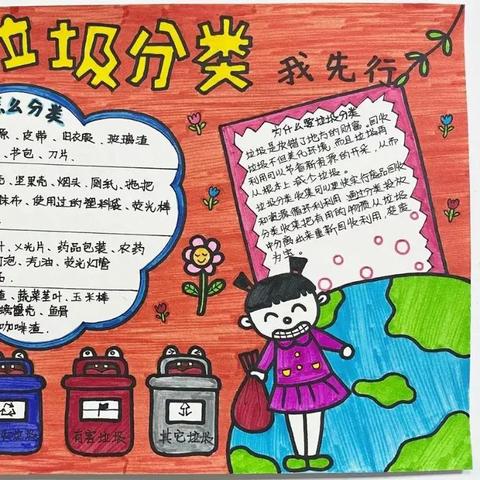 垃圾分类
我先行
怎么分类
皮带、旧衣服、玻璃渣
书包、刀片.
坚果壳、烟头、厕纸、拖把
抹布、使用过的塑料袋、荧光棒
X光片、药品包装、农药
灯泡、汽油、荧光灯管
蔬菜茎叶、玉米棒
鱼骨
咖啡渣.
为什么要垃圾分类
垃圾是放错了地方的财富.回收
垃圾不但美化环境,而且垃圾再
利用可以节省新资源的开采,从而
从根本上减少垃圾.
垃圾分类收集可以更快实行废品回收
和资源循环利用.通过分类投放
分类收集把有用的物质从垃圾
中分离出来重新回收利用,变废
为宝.
有害垃圾
其它垃圾